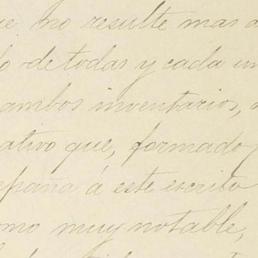 ue no resulte mas
o de todas y cada un
ambos inventarios,
ativo que, formado
spaña á este escrito
omo muy notable,